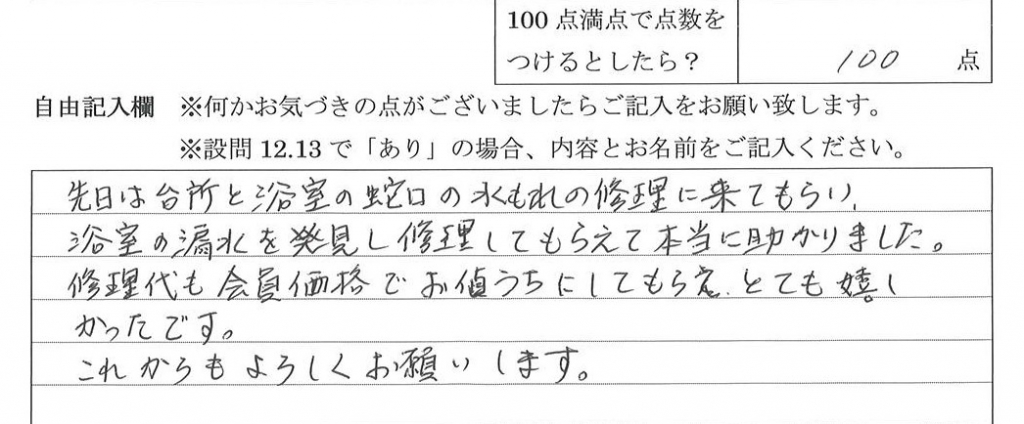 100 点満点で点数を
つけるとしたら？
100 点
自由記入欄 ※何かお気づきの点がございましたらご記入をお願い致します。
※設問 12.13 で「あり」の場合、内容とお名前をご記入ください。
先日は台所と浴室の蛇口の水もれの修理に来てもらい、
浴室の漏水を発見し修理してもらえて本当に助かりました。
修理代も会員価格でお値うちにしてもらえ、とても嬉し
かったです。
これからもよろしくお願いします。